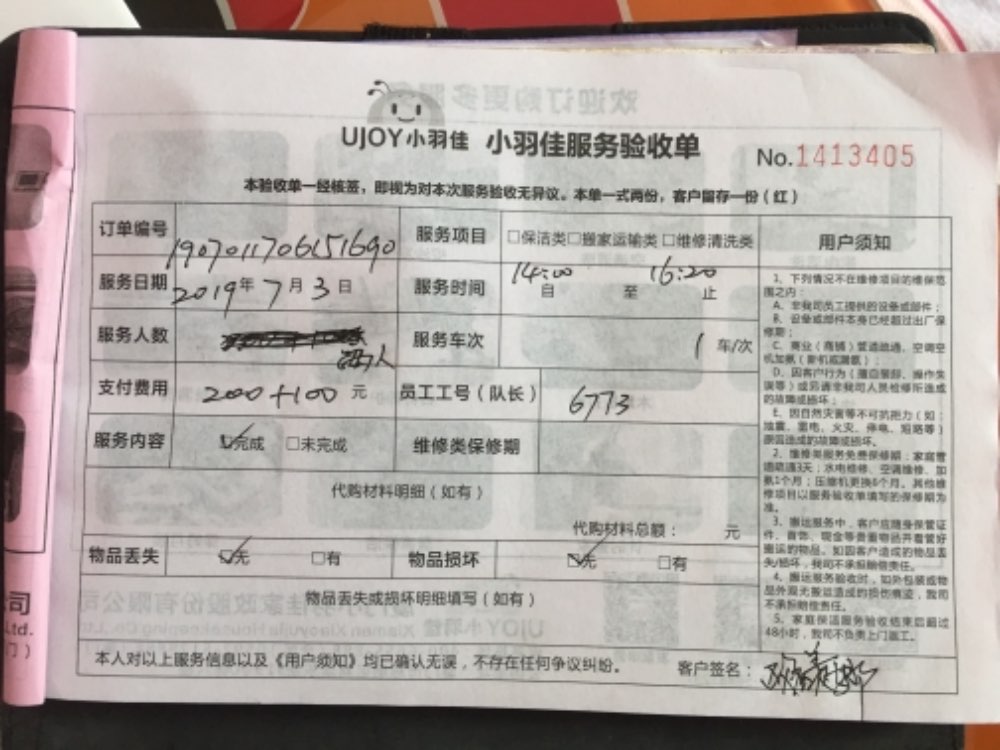 UJOY小羽佳 小羽佳服务验收单 No.1413405
本验收单一经核签，即视为对本次服务验收无异议。本单一式两份，客户留存一份（红）
订单编号 1907011706151690 服务项目 □保洁类□搬家运输类□维修清洗类
服务日期 2019年7月3日 服务时间 14:00自 至 16:20止
服务人数 服务车次 1车/次
支付费用 200+100元 员工工号（队长） 6773
服务内容 ☑完成 □未完成 维修类保修期
代购材料明细（如有）
代购材料总额： 元
物品丢失 ☑无 □有 物品损坏 ☑无 □有
物品丢失或损坏明细填写（如有）
本人对以上服务信息以及《用户须知》均已确认无误，不存在任何争议纠纷。 客户签名：
用户须知
1、下列情况不在维修项目的维保范
围之内：
A、非我司员工提供的设备或部件；
B、设备或部件本身已经超过出厂保
修期；
C、商业（商铺）管道疏通、空调空
机加氨（新机或漏氨）；
D、因客户行为（擅自装卸、操作失
误等）或另请非我司人员检修所造成
的故障或损坏；
E、因自然灾害等不可抗拒力（如：
地震、雷电、火灾、停电、短路等）
原因造成的故障或损坏。
2、维修类服务免费保修期：家庭管
道疏通3天；水电维修、空调维修、加
氨1个月；压缩机更换6个月。其他维
修项目以服务验收单填写的保修期为
准。
3、搬运服务中，客户应随身保管证
件、首饰、现金等贵重物品并看管好
搬运的物品。如因客户造成的物品丢
失/损坏，我司不承担赔偿责任。
4、搬运服务验收时，如外包装或物
品外观无搬运造成的损伤痕迹，我司
不承担赔偿责任。
5、家庭保洁服务验收结束后超过
48小时，我司不负责上门返工。
司
Ltd.
门）